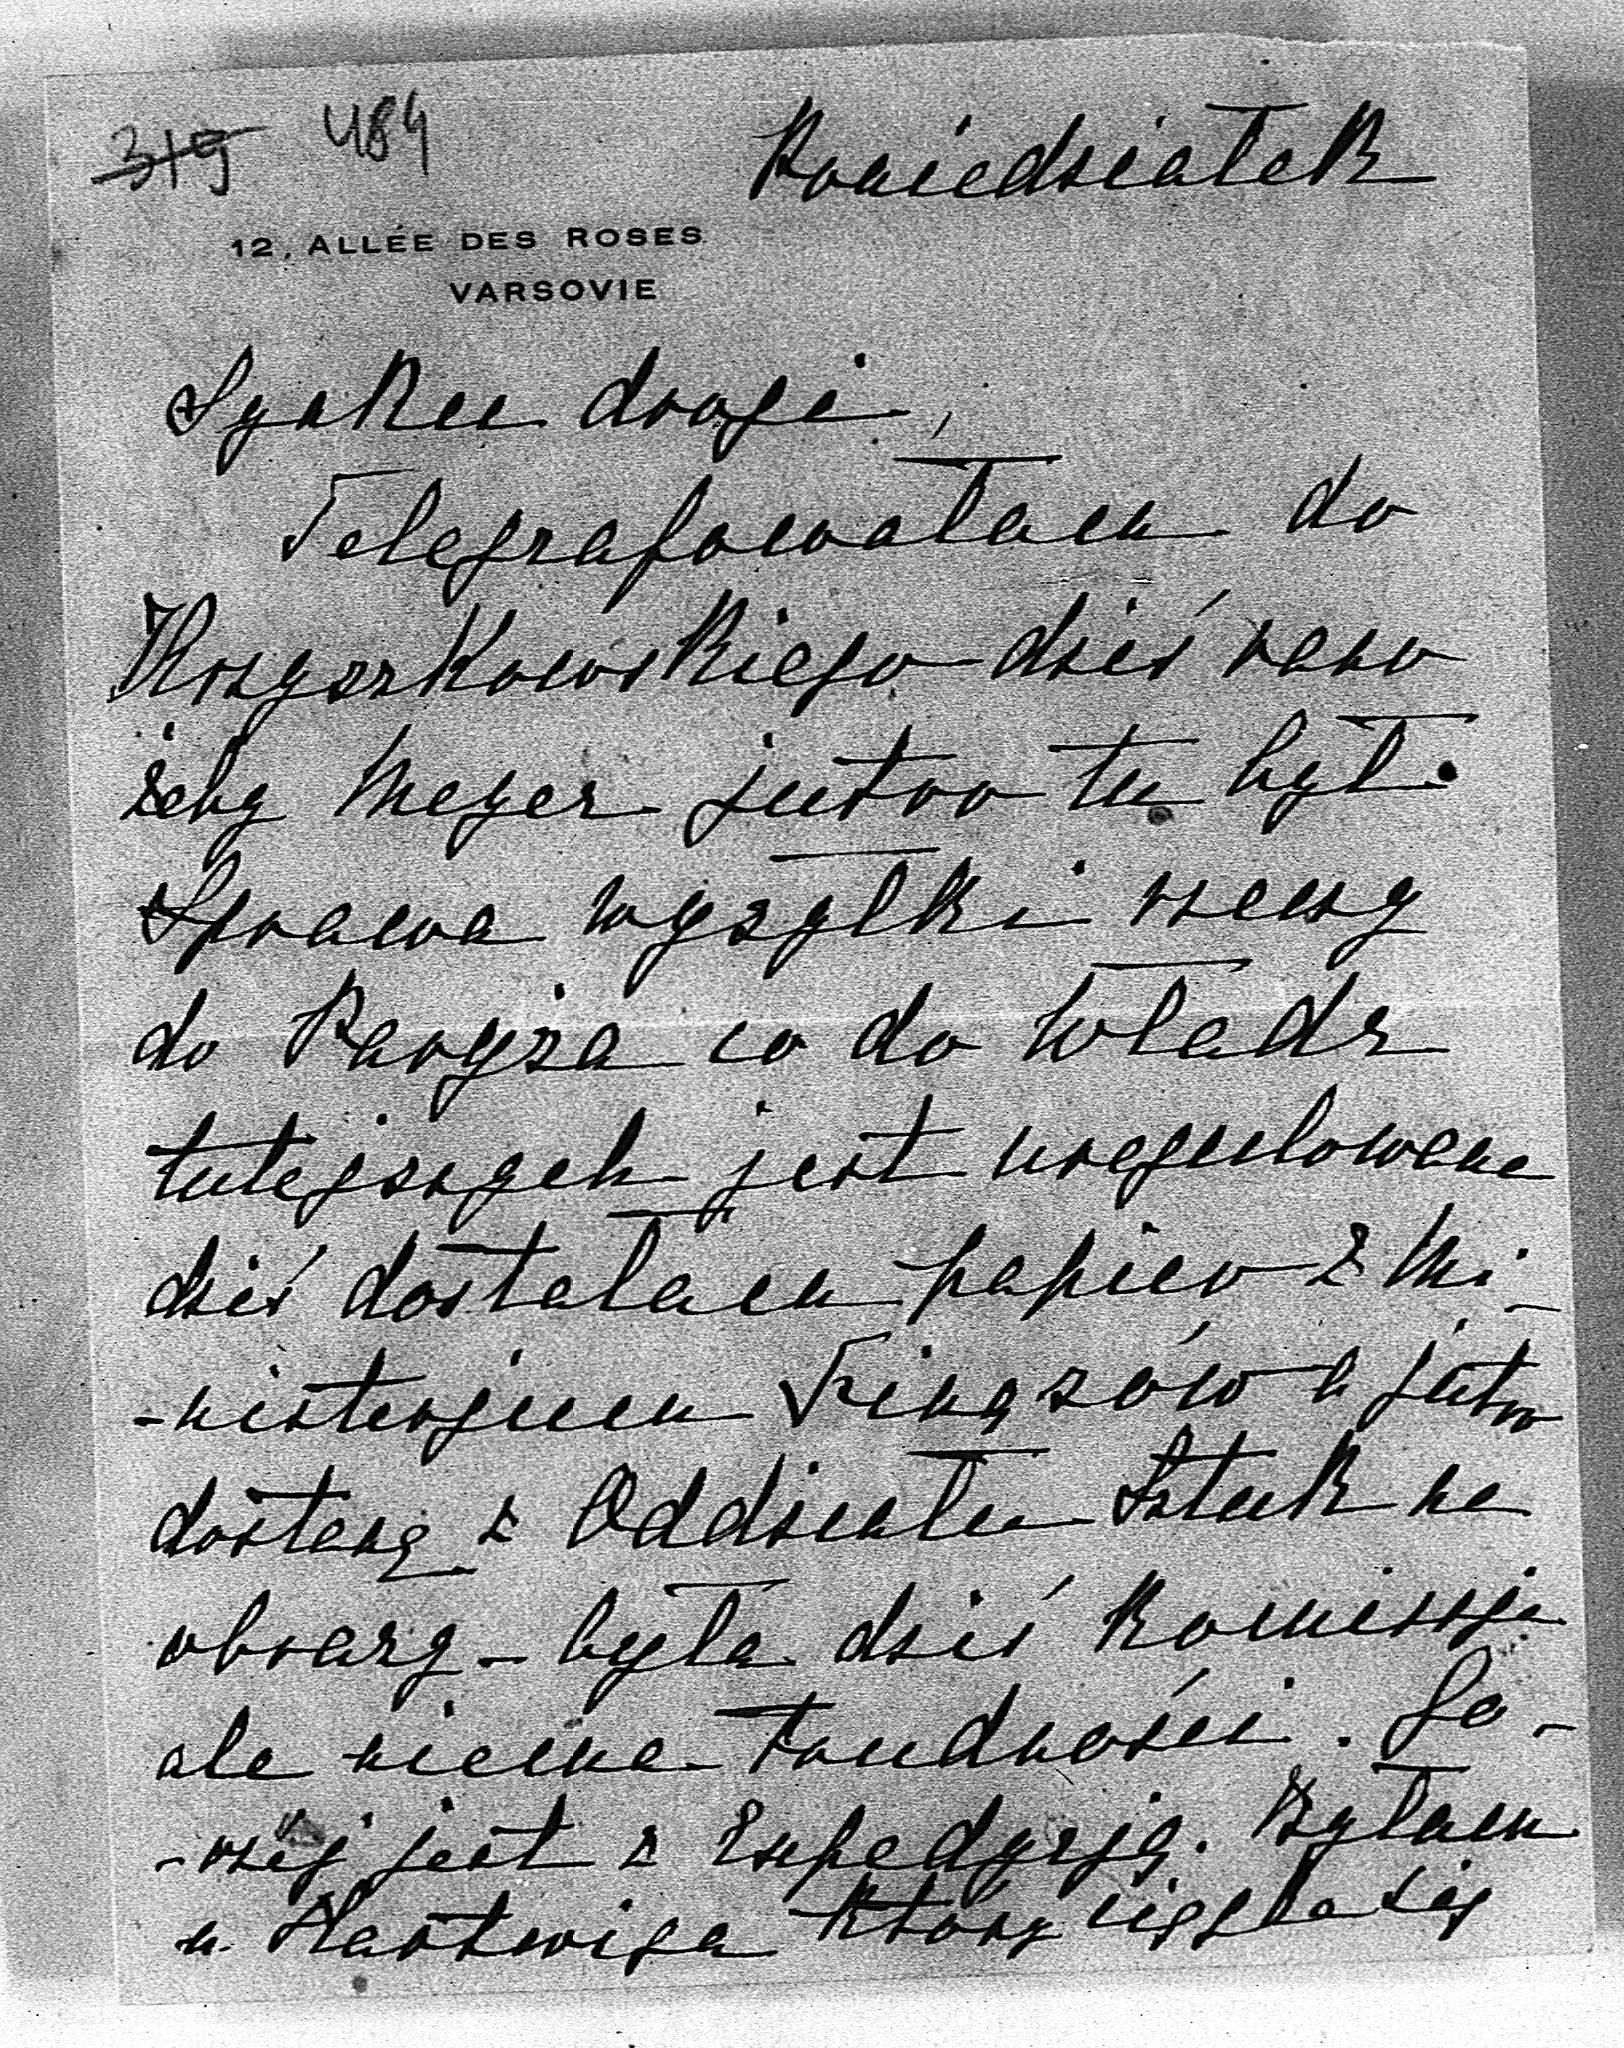 319 484
Poniedziałek
12, ALLÉE DES ROSES
VARSOVIE
Synku drogi,
Telegrafowałam do
dziś rano
żeby Meyer jutro tu był.
Sprawa wysyłki rzeczy
do Paryża co do władz
tutejszych jest uregulowana
dziś dostałam papier z Mi-
-nisterjum Finąsów a jutro
dostanę z Oddziału Sztuk na
obrazy - była dziś Komissja
ale niema trudności. Go-
-rzej jest z Expedycją. Byłam
u Hartwiga który ciągle się